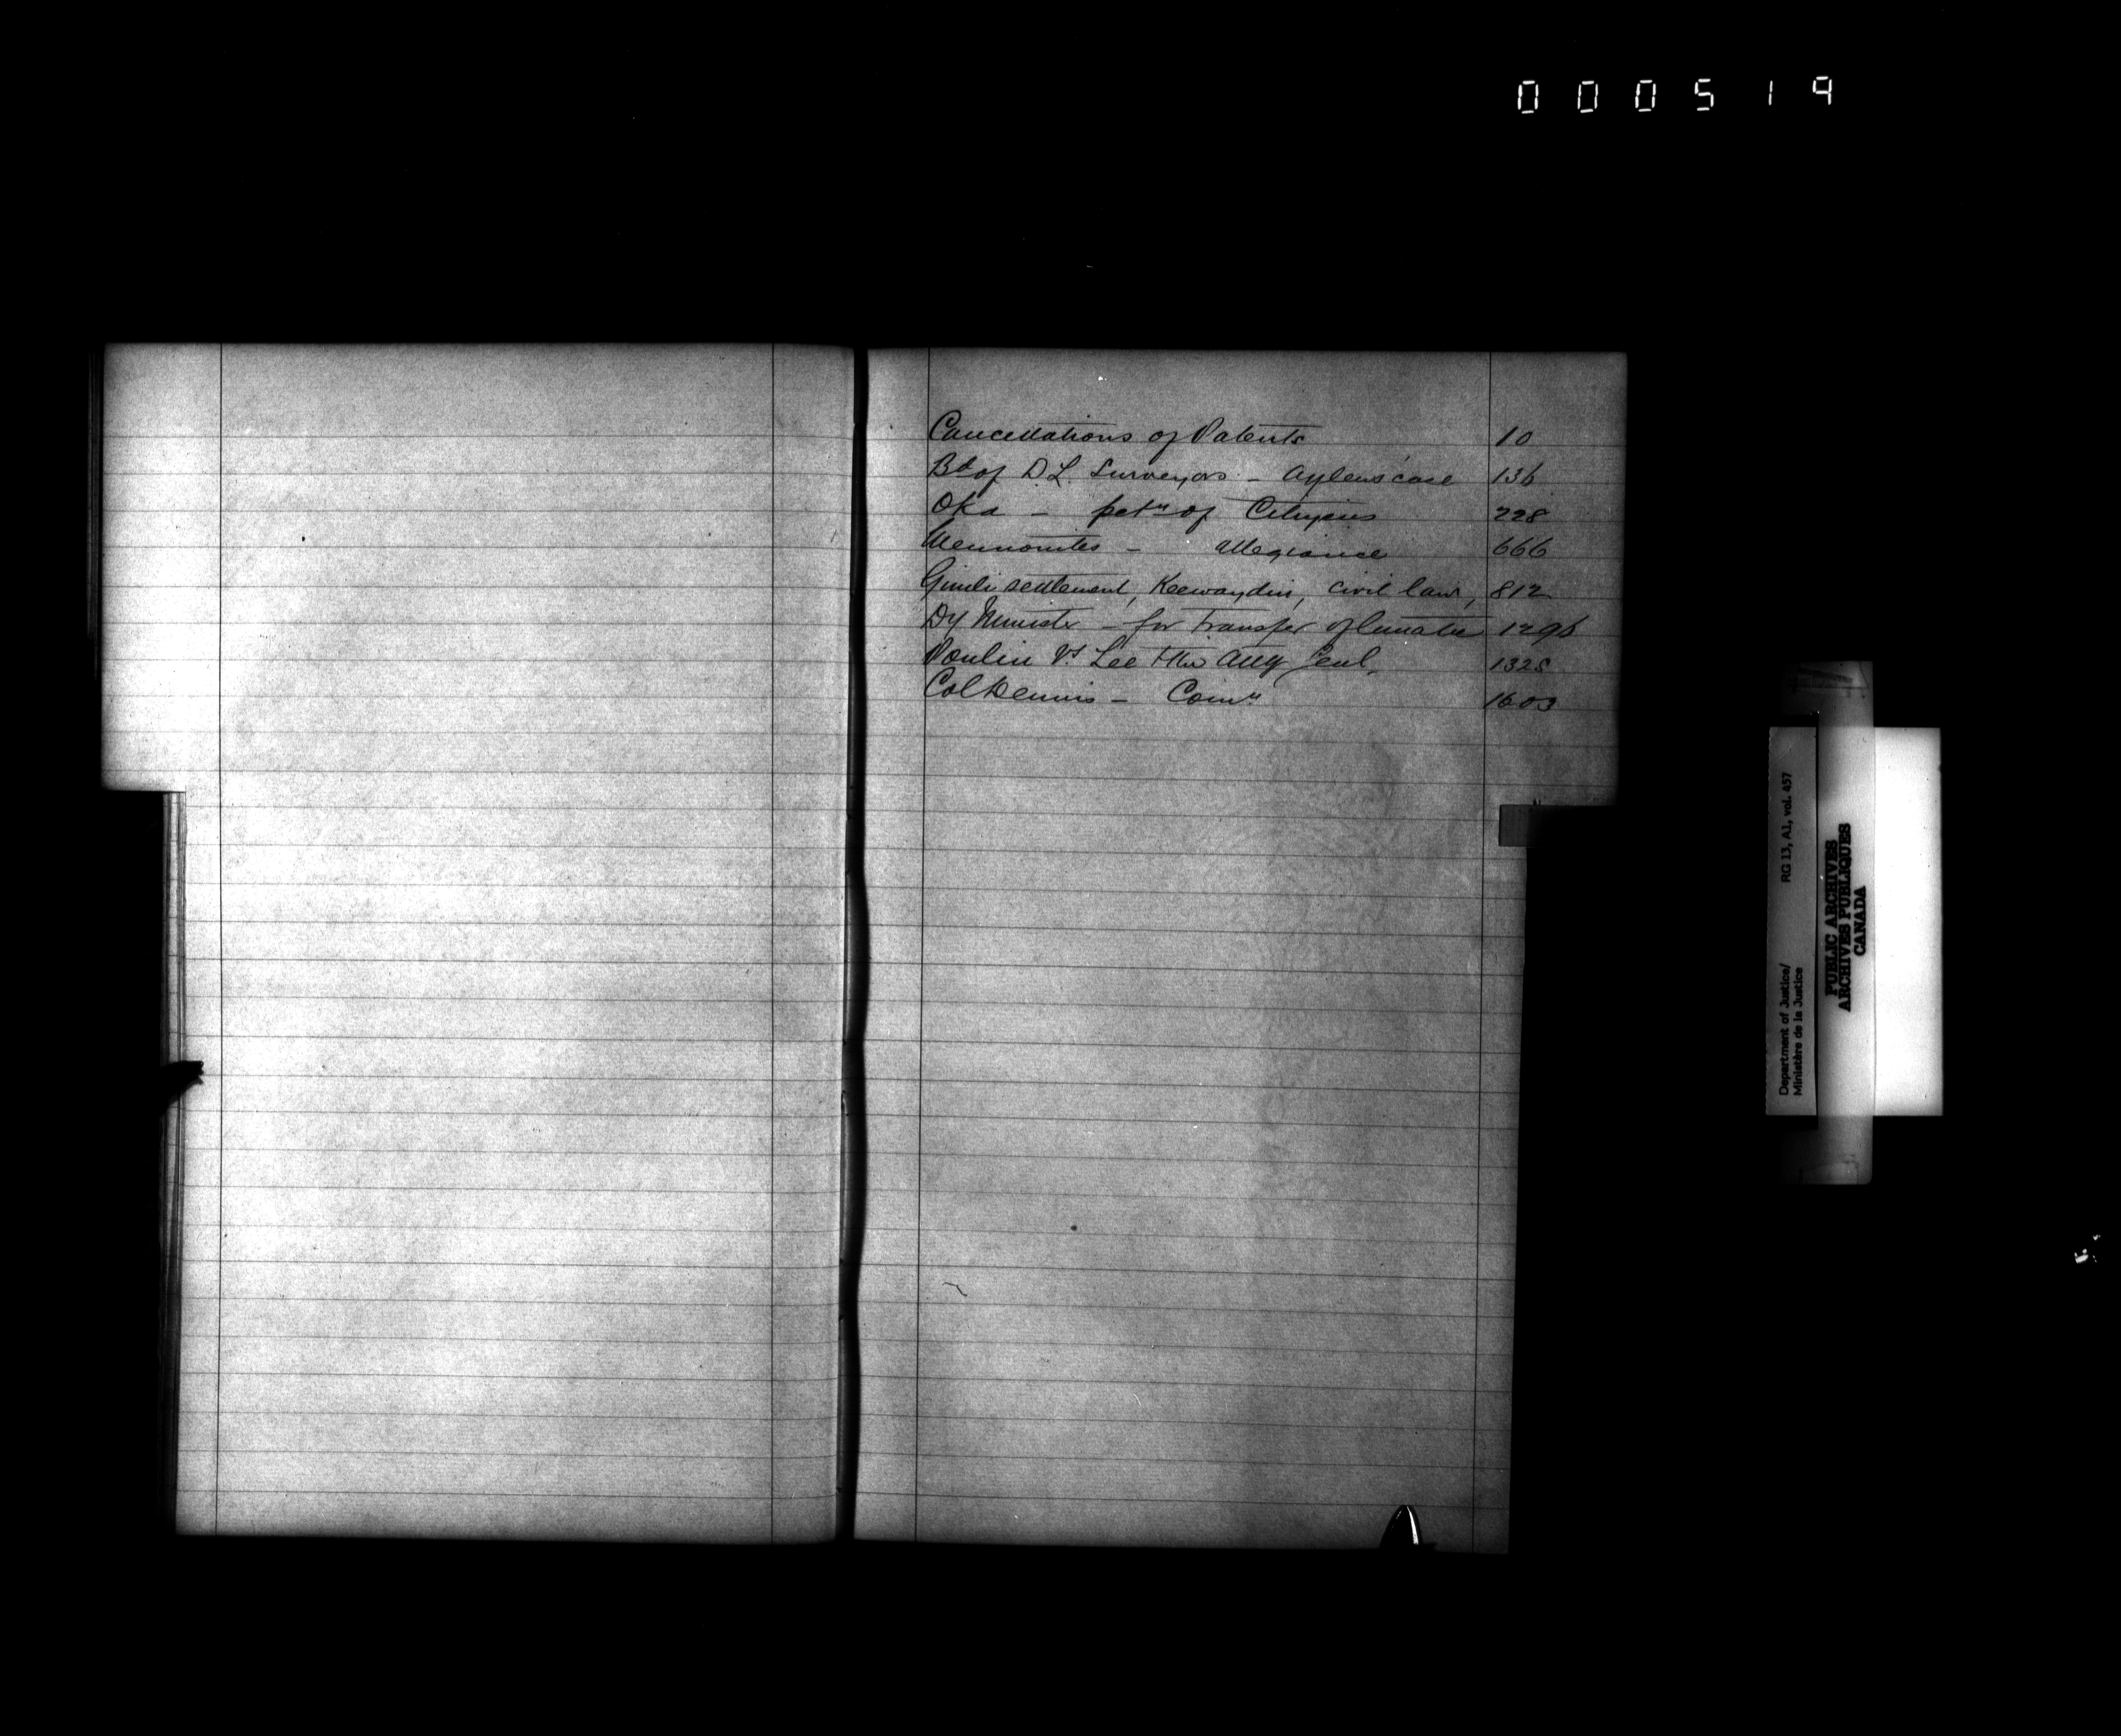 000519
Cancellations of Patents 10
Bd of D.L. Surveyors - Aylens' case 136
Oka - petn of Citizens 228
Mennonites - allegiance 666
Gimli settlement, Keewaydin, civil law, 812
Dy Minister - for transfer of lunatic 1296
Poulin Vs Lee & the Atty Genl. 1325
Col Dennis - Comn 1603
Department of Justice/ RG 13, A1, vol. 457
Ministère de la Justice
PUBLIC ARCHIVES
ARCHIVES PUBLIQUES
CANADA